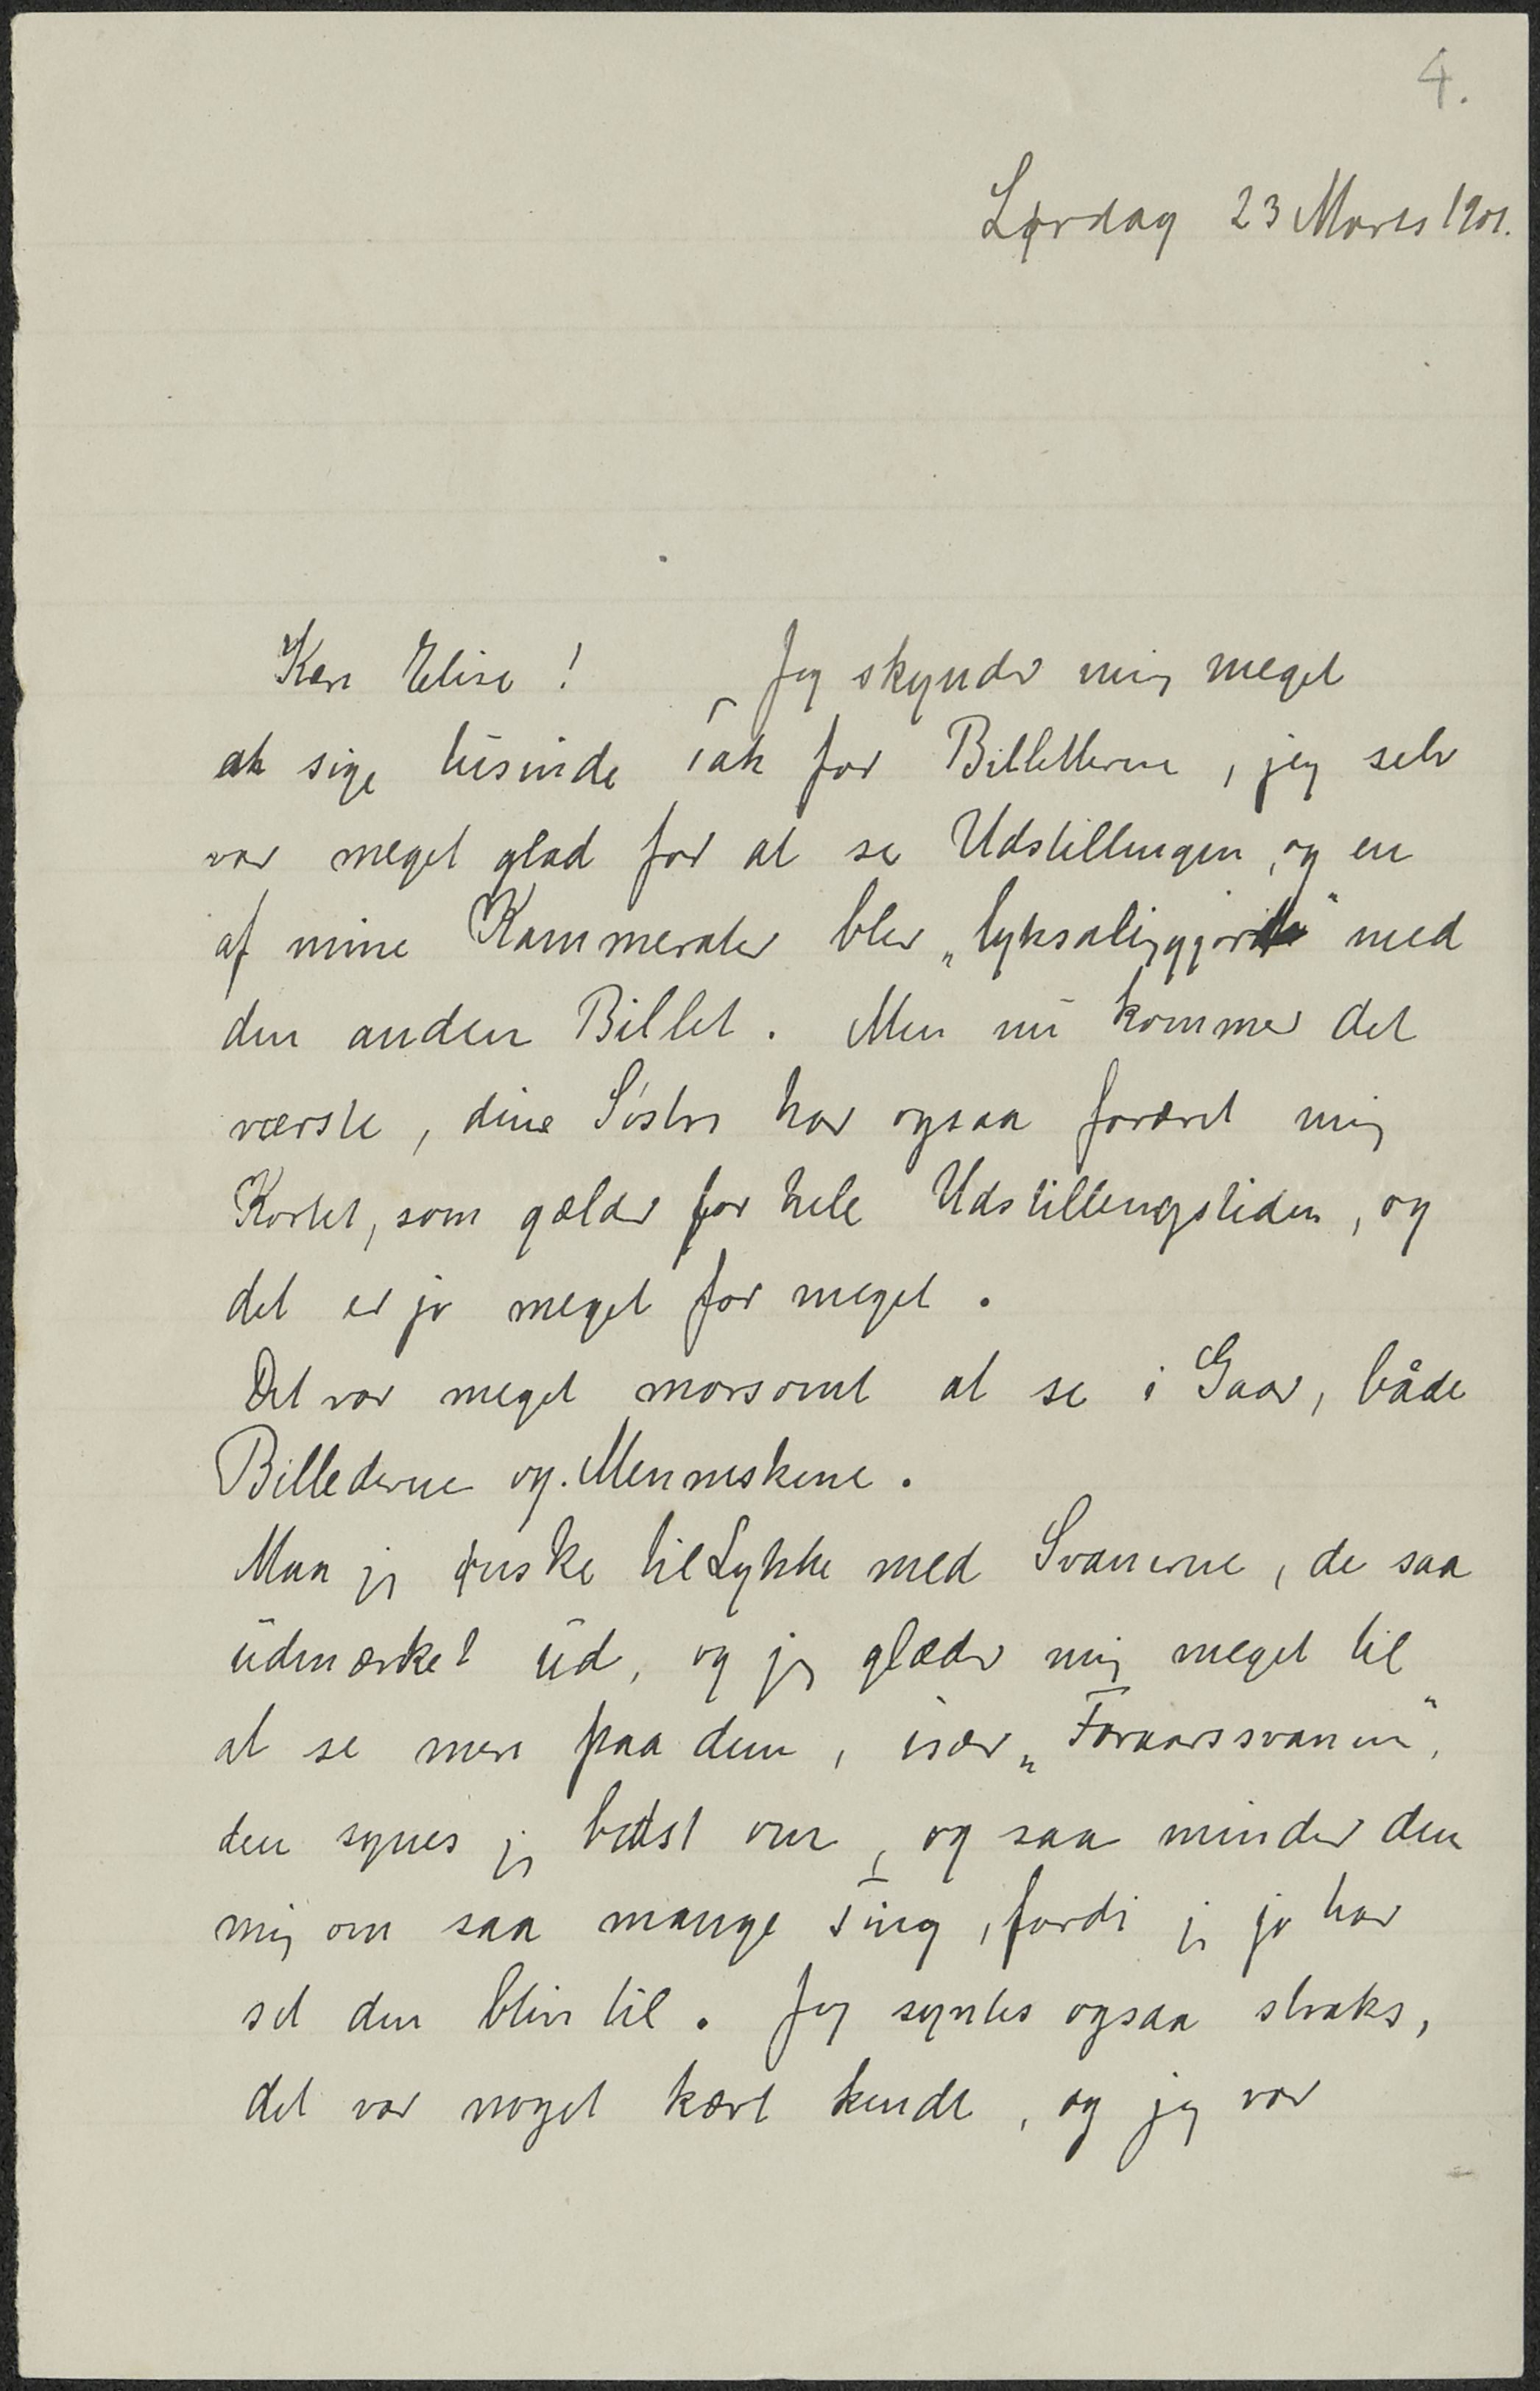 4.
Lørdag 23 Marts 1901.
Kære Elise! Jeg skynder mig meget
at sige tusinde Tak for Billetterne, jeg selv
var meget glad for at se Udstillingen, og en
af mine Kammerater blev „lyksaliggjort" med
den anden Billet. Men nu kommer det
værste, dine Søstre har ogsaa foræret mig
Kortet, som gælder for hele Udstillingstiden, og
det er jo meget for meget.
Det var meget morsomt at se i Gaar, både
Billederne og Menneskene.
Maa jeg ønske til Lykke med Svanerne, de saa
udmærket ud, og jeg glæder mig meget til
at se mere paa dem, især „Foraarssvanen",
den synes jeg bedst om, og saa minder den
mig om saa mange Ting, fordi jeg jo har
set den blive til. Jeg syntes ogsaa straks,
det var noget kært kendt, og jeg var